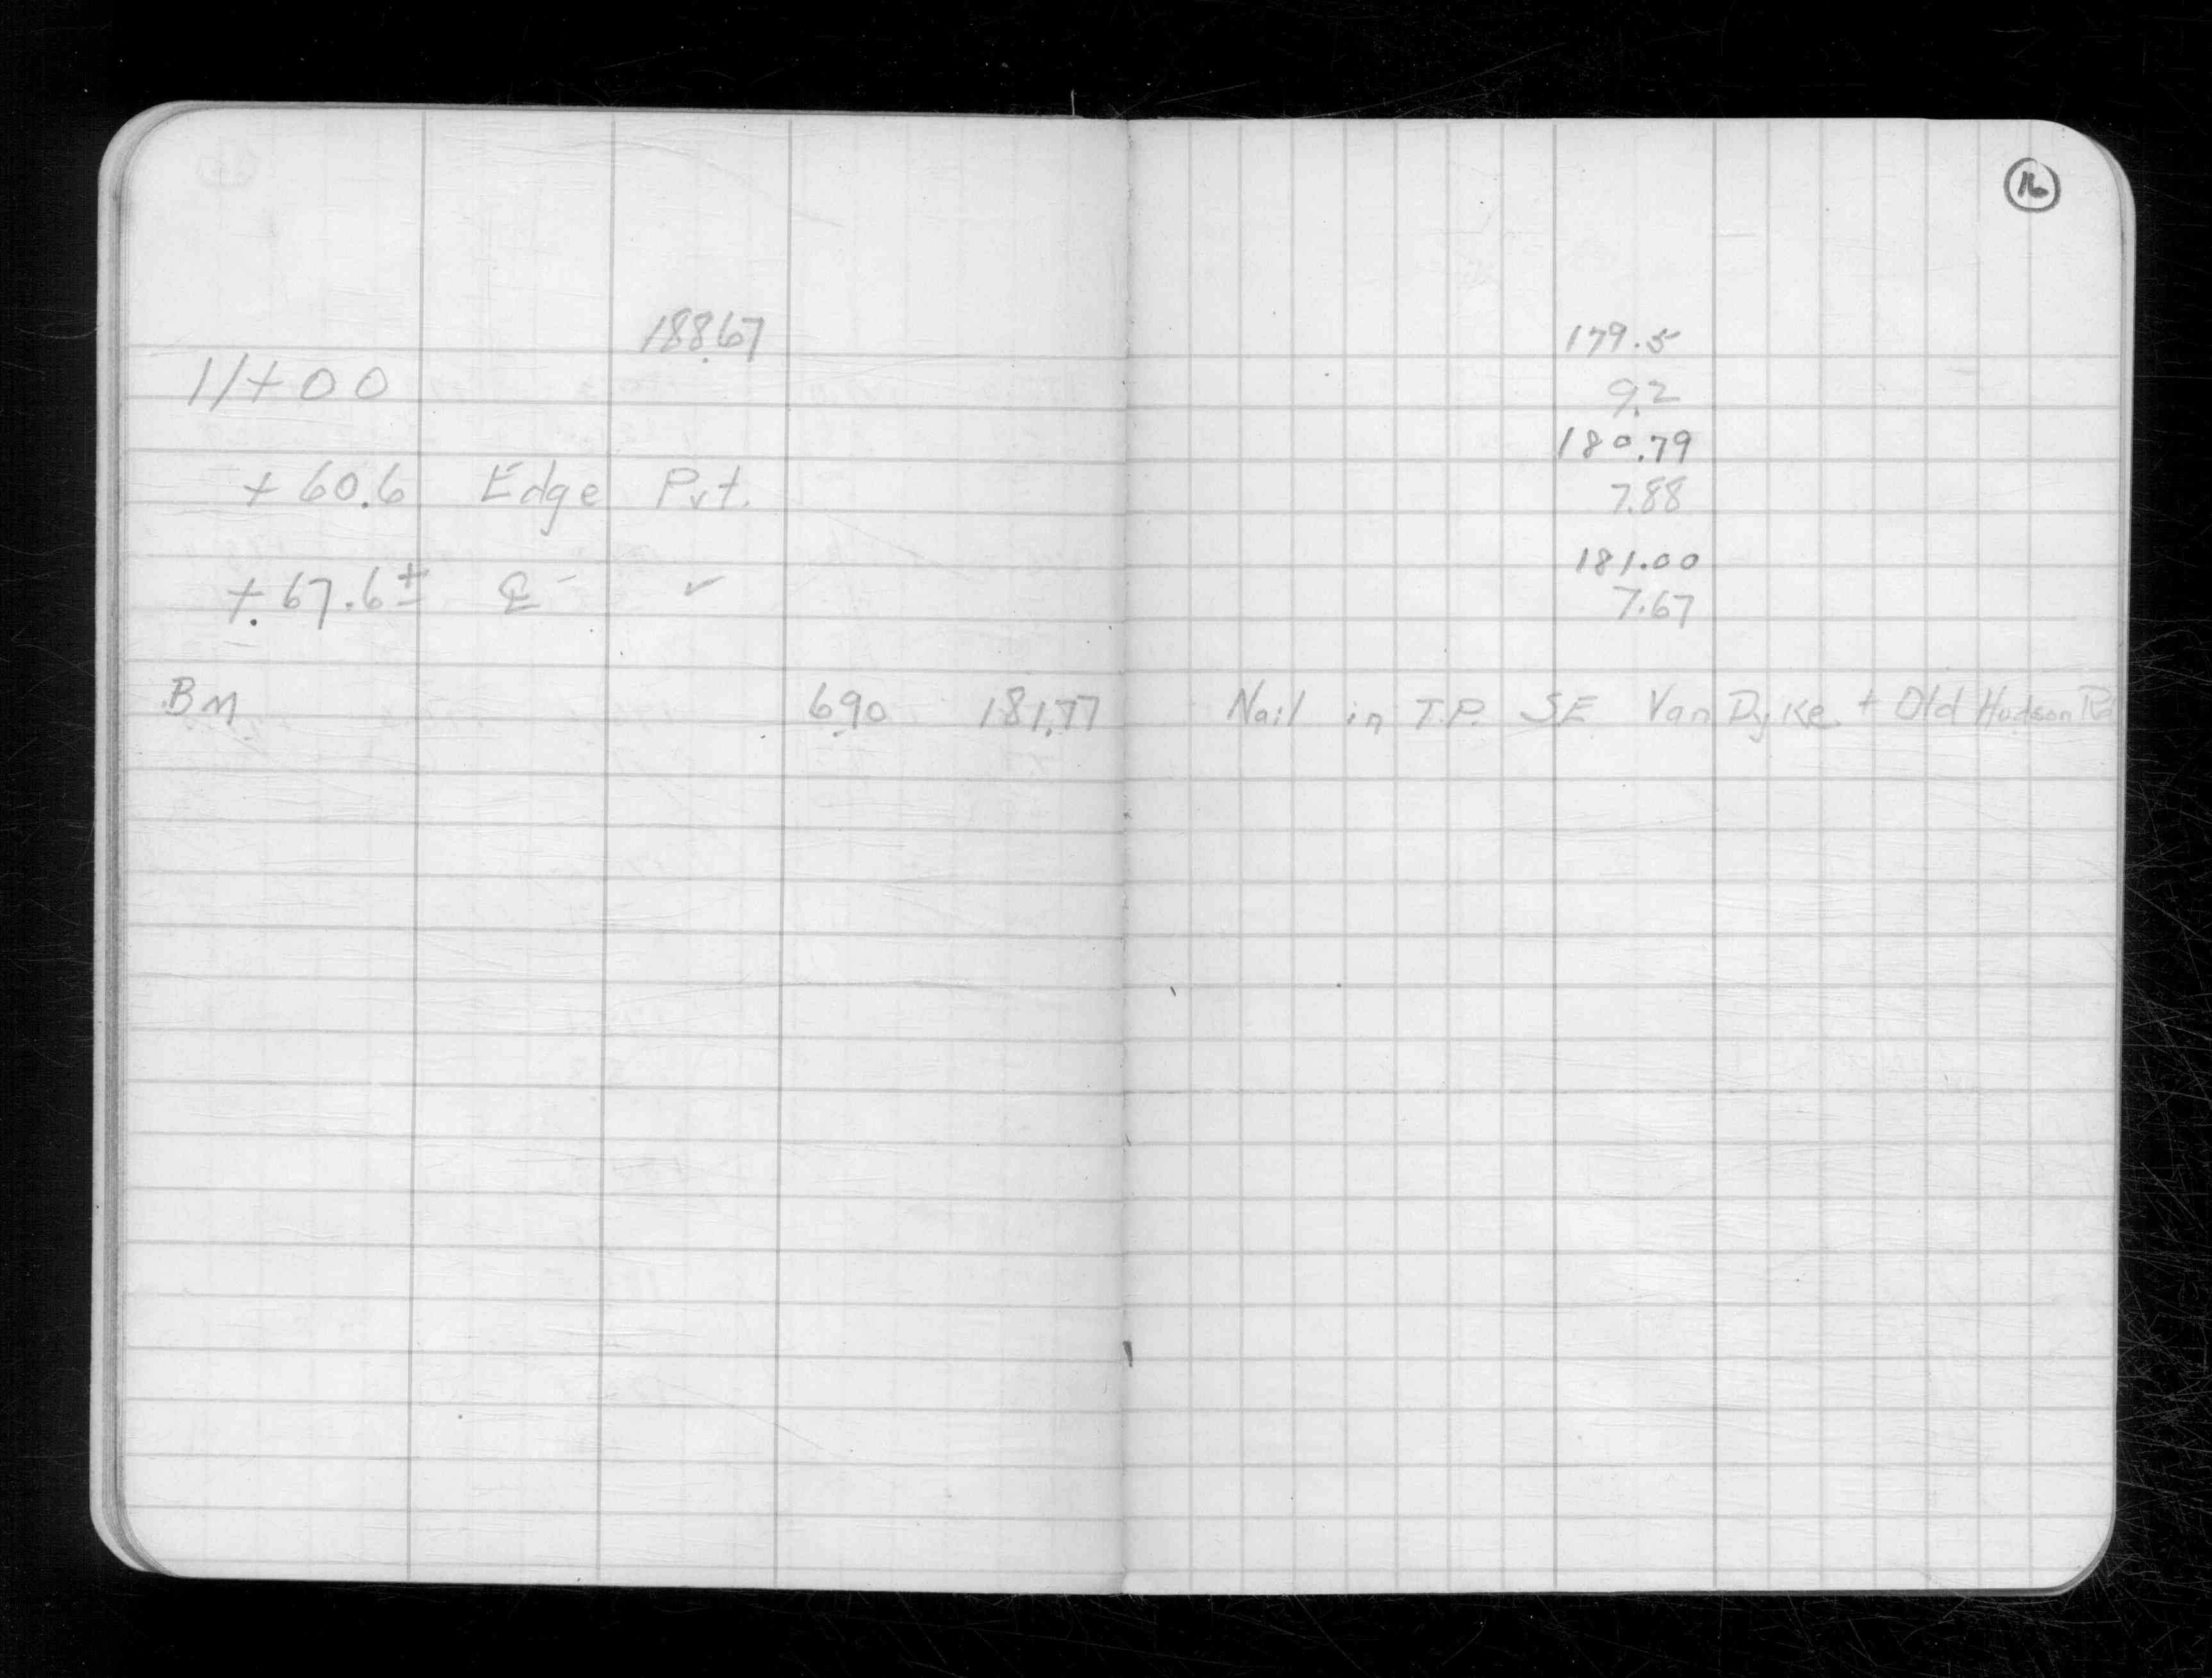 16
188.67 179.5
11+00 9.2
180.79
+60.6 Edge Pvt. 7.88
181.00
+67.6± ℄ ✓ 7.67
BM 6.90 181.77 Nail in T.P. SE Van Dyke + Old Hudson Rd